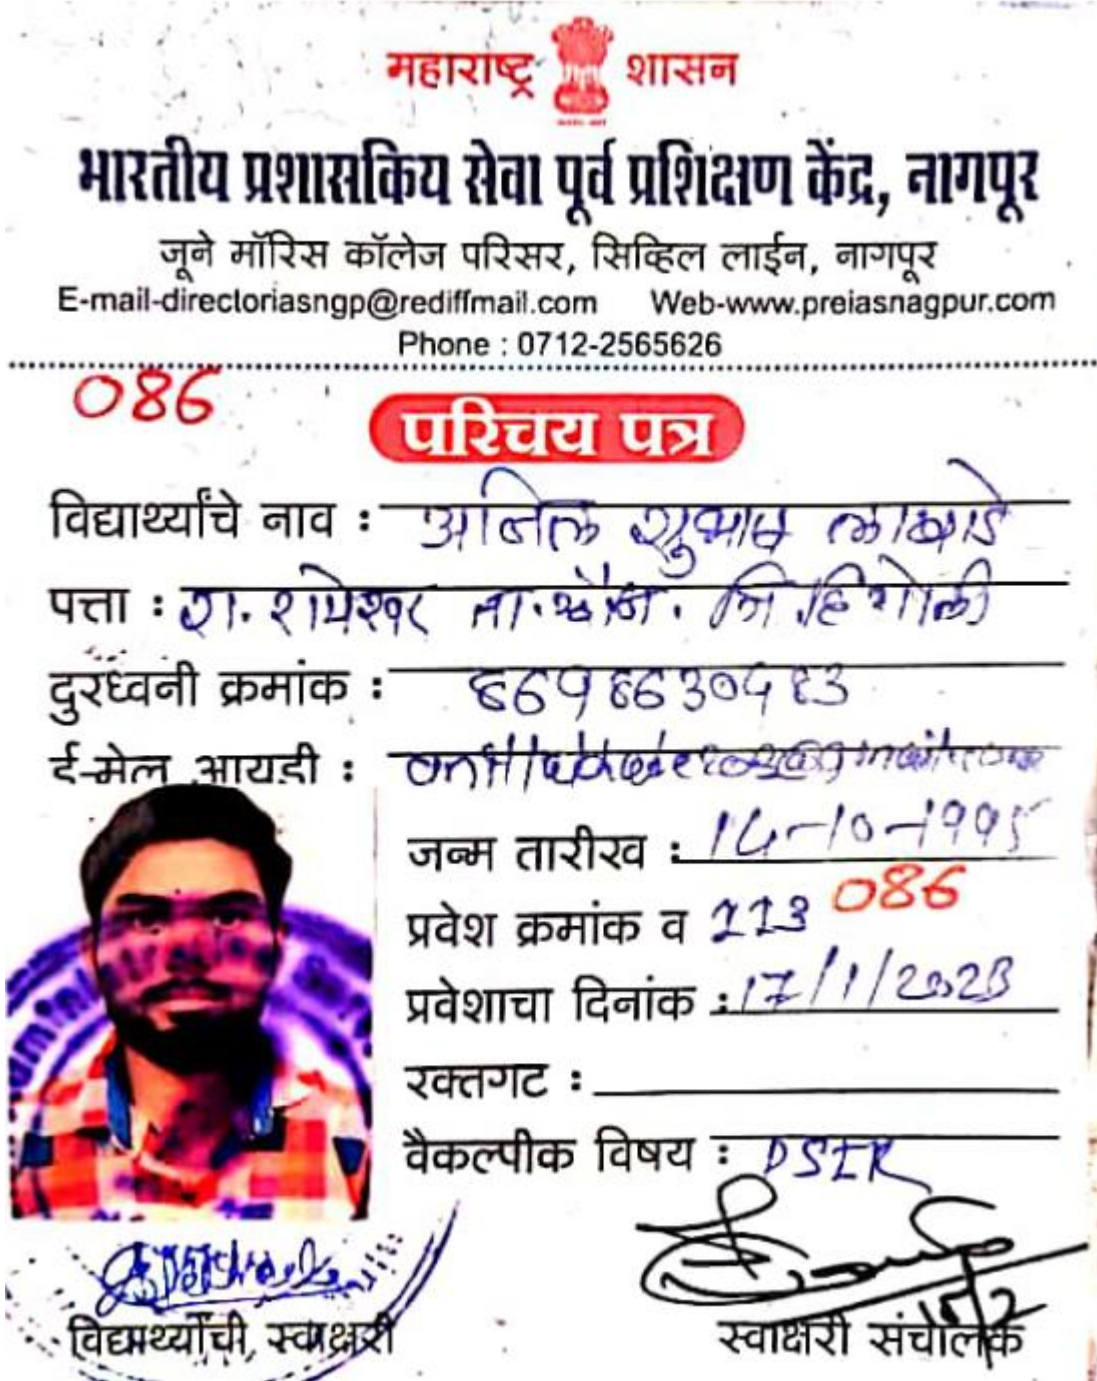 महाराष्ट्र शासन
भारतीय प्रशासकिय सेवा पूर्व प्रशिक्षण केंद्र, नागपूर
जूने मॉरिस कॉलेज परिसर, सिव्हिल लाईन, नागपूर
E-mail-directoriasngp@rediffmail.com Web-www.preiasnagpur.com
Phone : 0712-2565626
086
परिचय पत्र
विद्यार्थ्यांचे नाव : अनिल सुभाष
पत्ता : रा. रामेश्वर ता. जि. हिंगोली
दुरध्वनी क्रमांक :
ई-मेल आयडी :
जन्म तारीख : 14-10-1995
प्रवेश क्रमांक व 113 086
प्रवेशाचा दिनांक : 17/1/2023
रक्तगट :
वैकल्पीक विषय : PSIR
विद्यार्थ्यांची स्वाक्षरी
स्वाक्षरी संचालक